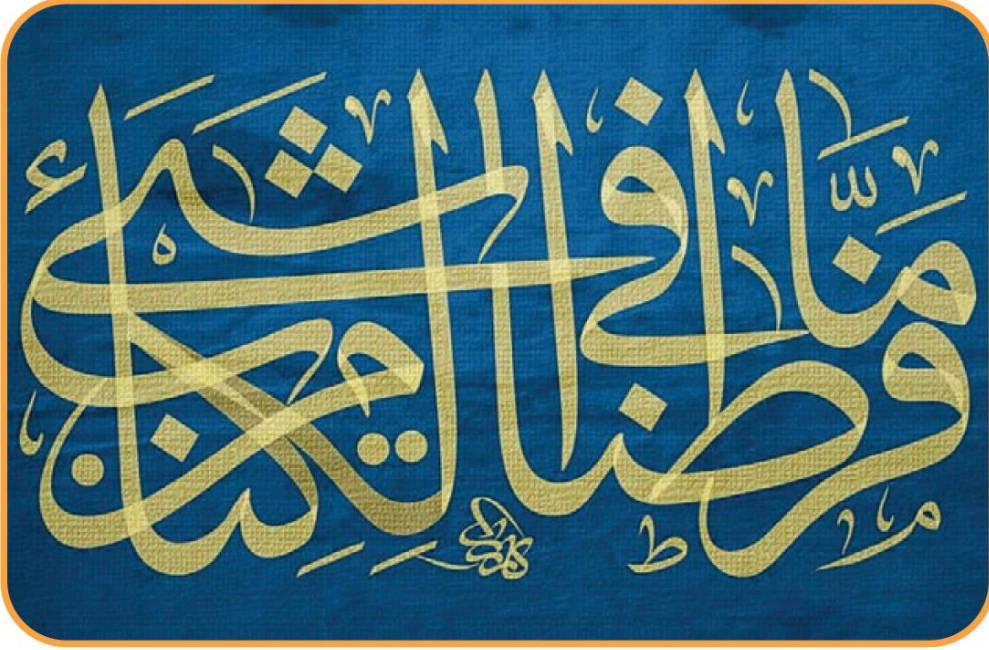 مَّا فَرَّطْنَا فِي الْكِتَابِ مِن شَيْءٍ